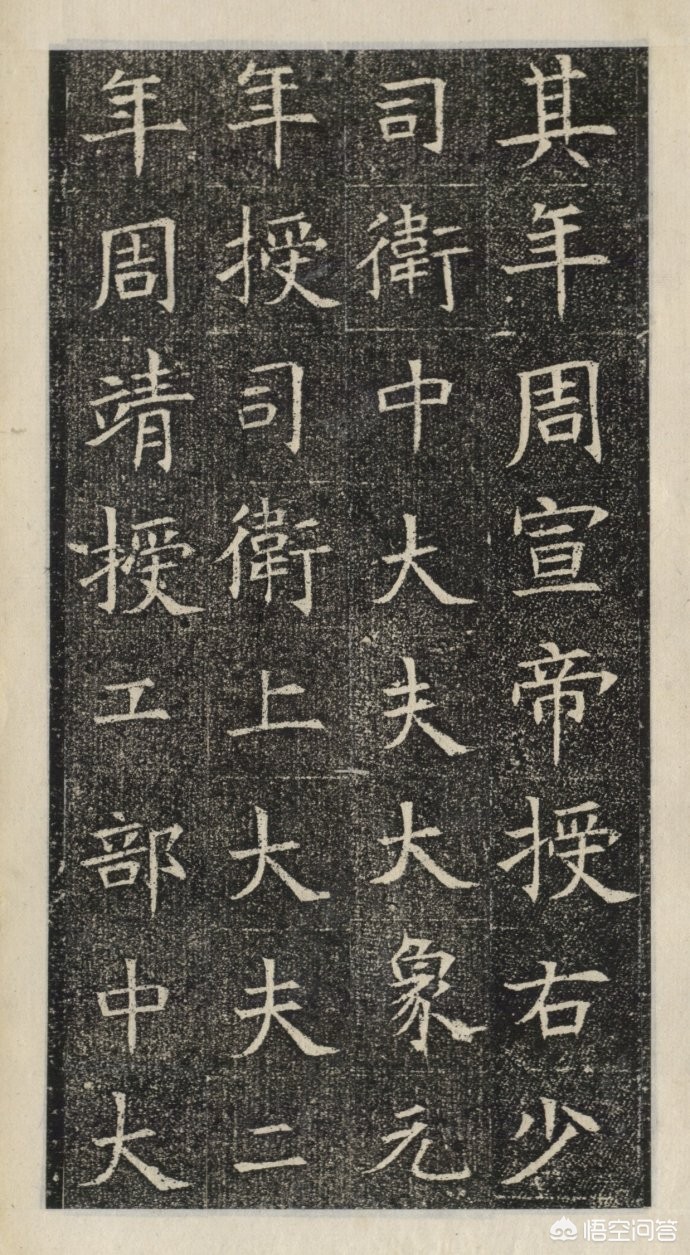 其年周宣帝授右少
司衛中大夫大象元
年授司衛上大夫二
年周靖授工部中大
悟空问答